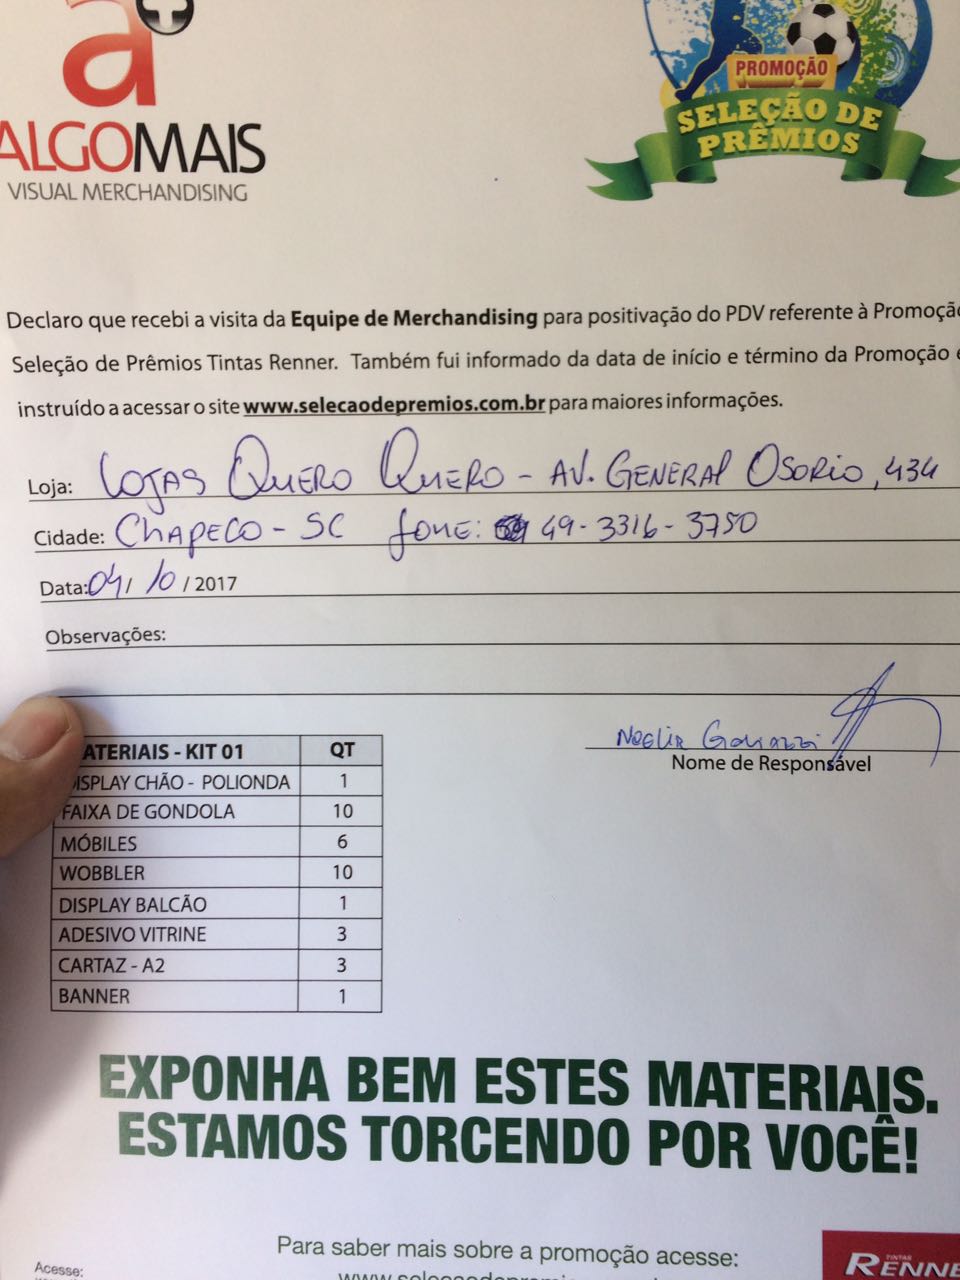 a+
ALGOMAIS
VISUAL MERCHANDISING
PROMOÇÃO
SELEÇÃO DE
PRÊMIOS
Declaro que recebi a visita da Equipe de Merchandising para positivação do PDV referente à Promoção
Seleção de Prêmios Tintas Renner. Também fui informado da data de início e término da Promoção e
instruído a acessar o site www.selecaodepremios.com.br para maiores informações.
Loja: LOJAS QUERO QUERO - AV. GENERAL OSORIO, 434
Cidade: CHAPECO - SC fone: 49-3316-3750
Data: 04/10/2017
Observações:
Nome de Responsável
MATERIAIS - KIT 01 QT
DISPLAY CHÃO - POLIONDA 1
FAIXA DE GONDOLA 10
MÓBILES 6
WOBBLER 10
DISPLAY BALCÃO 1
ADESIVO VITRINE 3
CARTAZ - A2 3
BANNER 1
EXPONHA BEM ESTES MATERIAIS.
ESTAMOS TORCENDO POR VOCÊ!
Para saber mais sobre a promoção acesse:
Acesse:
TINTAS
RENNE